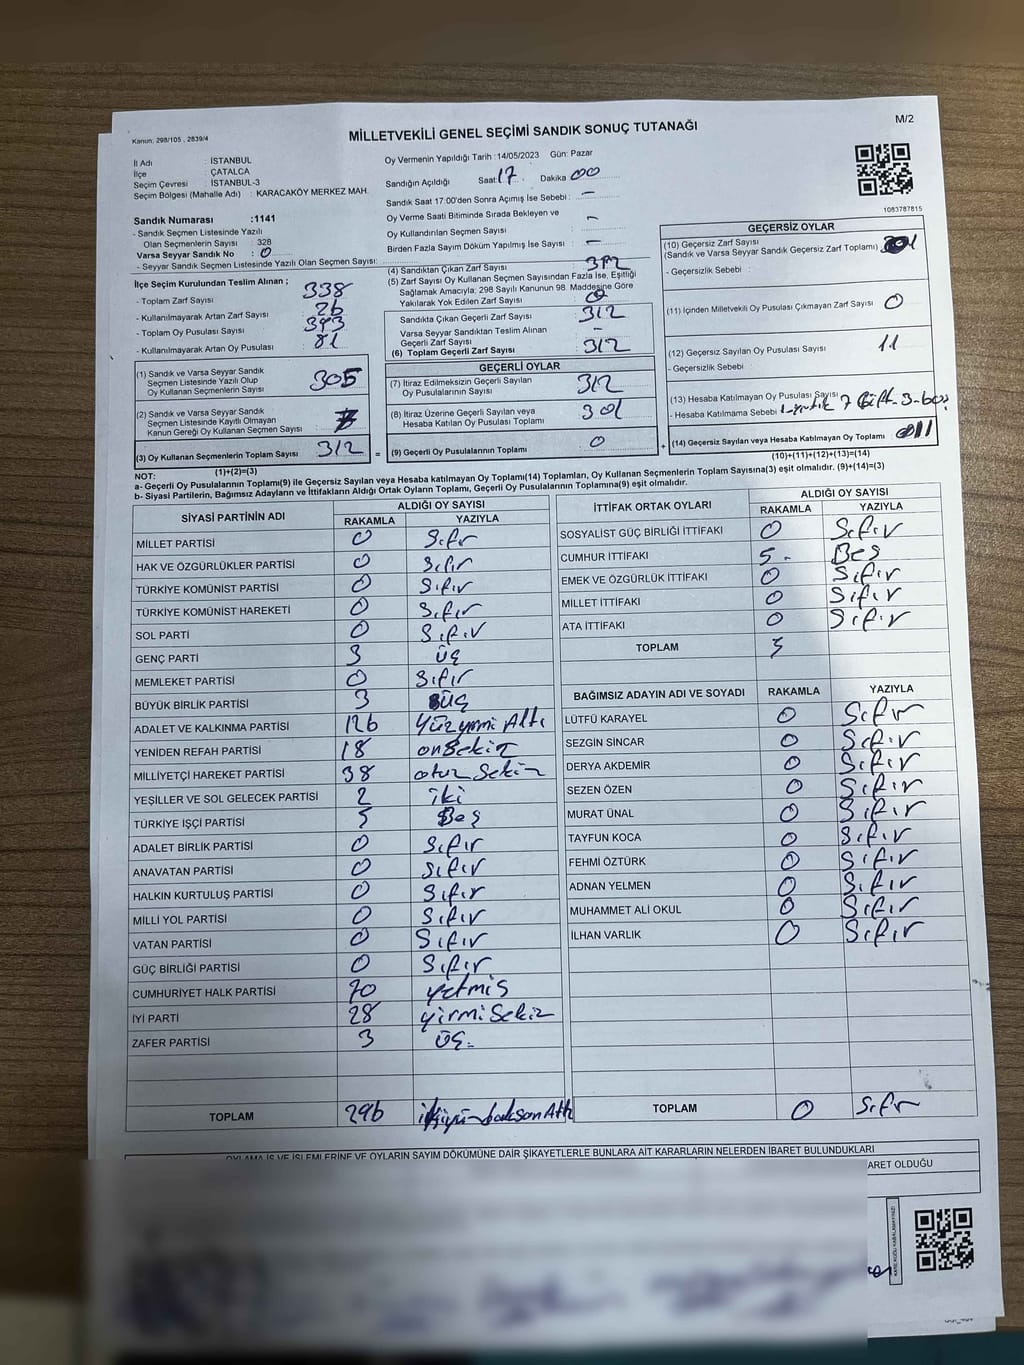 Kanun: 298/105 , 2839/4
MİLLETVEKİLİ GENEL SEÇİMİ SANDIK SONUÇ TUTANAĞI
M/2
İl Adı : İSTANBUL
İlçe : ÇATALCA
Seçim Çevresi : İSTANBUL-3
Seçim Bölgesi (Mahalle Adı) : KARACAKÖY MERKEZ MAH.
Sandık Numarası :1141
- Sandık Seçmen Listesinde Yazılı
Olan Seçmenlerin Sayısı : 328
Varsa Seyyar Sandık No : 0
- Seyyar Sandık Seçmen Listesinde Yazılı Olan Seçmen Sayısı:
Oy Vermenin Yapıldığı Tarih :14/05/2023 Gün: Pazar
Sandığın Açıldığı Saat: 17 Dakika 00
Sandık Saat 17:00'den Sonra Açımış İse Sebebi : -
Oy Verme Saati Bitiminde Sırada Bekleyen ve
Oy Kullandırılan Seçmen Sayısı : -
Birden Fazla Sayım Döküm Yapılmış İse Sayısı : -
1083787815
İlçe Seçim Kurulundan Teslim Alınan ;
- Toplam Zarf Sayısı : 338
- Kullanılmayarak Artan Zarf Sayısı : 26
- Toplam Oy Pusulası Sayısı : 393
- Kullanılmayarak Artan Oy Pusulası : 81
(1) Sandık ve Varsa Seyyar Sandık
Seçmen Listesinde Yazılı Olup
Oy Kullanan Seçmenlerin Sayısı : 305
(2) Sandık ve Varsa Seyyar Sandık
Seçmen Listesinde Kayıtlı Olmayan
Kanun Gereği Oy Kullanan Seçmen Sayısı : 7
(3) Oy Kullanan Seçmenlerin Toplam Sayısı 312
(1)+(2)=(3)
(4) Sandıktan Çıkan Zarf Sayısı : 312
(5) Zarf Sayısı Oy Kullanan Seçmen Sayısından Fazla İse, Eşitliği
Sağlamak Amacıyla; 298 Sayılı Kanunun 98. Maddesine Göre
Yakılarak Yok Edilen Zarf Sayısı : 0
Sandıkta Çıkan Geçerli Zarf Sayısı : 312
Varsa Seyyar Sandıktan Teslim Alınan
Geçerli Zarf Sayısı : -
(6) Toplam Geçerli Zarf Sayısı : 312
GEÇERLİ OYLAR
(7) İtiraz Edilmeksizin Geçerli Sayılan
Oy Pusulalarının Sayısı : 312
(8) İtiraz Üzerine Geçerli Sayılan veya
Hesaba Katılan Oy Pusulası Toplamı : 301
= (9) Geçerli Oy Pusulalarının Toplamı : 0 +
GEÇERSİZ OYLAR
(10) Geçersiz Zarf Sayısı
(Sandık ve Varsa Seyyar Sandık Geçersiz Zarf Toplamı) :
- Geçersizlik Sebebi :
(11) İçinden Milletvekili Oy Pusulası Çıkmayan Zarf Sayısı : 0
(12) Geçersiz Sayılan Oy Pusulası Sayısı : 11
- Geçersizlik Sebebi
(13) Hesaba Katılmayan Oy Pusulası Sayısı
- Hesaba Katılmama Sebebi : 7 Çift - 3-boş
(14) Geçersiz Sayılan veya Hesaba Katılmayan Oy Toplamı : 11
(10)+(11)+(12)+(13)=(14)
NOT:
a- Geçerli Oy Pusulalarının Toplamı(9) ile Geçersiz Sayılan veya Hesaba katılmayan Oy Toplamı(14) Toplamları, Oy Kullanan Seçmenlerin Toplam Sayısına(3) eşit olmalıdır. (9)+(14)=(3)
b- Siyasi Partilerin, Bağımsız Adayların ve İttifakların Aldığı Ortak Oyların Toplamı, Geçerli Oy Pusulalarının Toplamına(9) eşit olmalıdır.
SİYASİ PARTİNİN ADI ALDIĞI OY SAYISI
RAKAMLA YAZIYLA
MİLLET PARTİSİ 0 Sıfır
HAK VE ÖZGÜRLÜKLER PARTİSİ 0 Sıfır
TÜRKİYE KOMÜNİST PARTİSİ 0 Sıfır
TÜRKİYE KOMÜNİST HAREKETİ 0 Sıfır
SOL PARTİ 0 Sıfır
GENÇ PARTİ 3 üç
MEMLEKET PARTİSİ 0 Sıfır
BÜYÜK BİRLİK PARTİSİ 3 üç
ADALET VE KALKINMA PARTİSİ 126 Yüzyirmi Altı
YENİDEN REFAH PARTİSİ 18 onSekiz
MİLLİYETÇİ HAREKET PARTİSİ 38 otuz Sekiz
YEŞİLLER VE SOL GELECEK PARTİSİ 2 iki
TÜRKİYE İŞÇİ PARTİSİ 5 Beş
ADALET BİRLİK PARTİSİ 0 Sıfır
ANAVATAN PARTİSİ 0 Sıfır
HALKIN KURTULUŞ PARTİSİ 0 Sıfır
MİLLİ YOL PARTİSİ 0 Sıfır
VATAN PARTİSİ 0 Sıfır
GÜÇ BİRLİĞİ PARTİSİ 0 Sıfır
CUMHURİYET HALK PARTİSİ 70 yetmiş
İYİ PARTİ 28 yirmiSekiz
ZAFER PARTİSİ 3 üç
TOPLAM 296 ikiyüz doksan Altı
İTTİFAK ORTAK OYLARI ALDIĞI OY SAYISI
RAKAMLA YAZIYLA
SOSYALİST GÜÇ BİRLİĞİ İTTİFAKI 0 Sıfır
CUMHUR İTTİFAKI 5 Beş
EMEK VE ÖZGÜRLÜK İTTİFAKI 0 Sıfır
MİLLET İTTİFAKI 0 Sıfır
ATA İTTİFAKI 0 Sıfır
TOPLAM 5
BAĞIMSIZ ADAYIN ADI VE SOYADI RAKAMLA YAZIYLA
LÜTFÜ KARAYEL 0 Sıfır
SEZGİN SİNCAR 0 Sıfır
DERYA AKDEMİR 0 Sıfır
SEZEN ÖZEN 0 Sıfır
MURAT ÜNAL 0 Sıfır
TAYFUN KOCA 0 Sıfır
FEHMİ ÖZTÜRK 0 Sıfır
ADNAN YELMEN 0 Sıfır
MUHAMMET ALİ OKUL 0 Sıfır
İLHAN VARLIK 0 Sıfır
TOPLAM 0 Sıfır
OYLAMA İŞ VE İŞLEMLERİNE VE OYLARIN SAYIM DÖKÜMÜNE DAİR ŞİKAYETLERLE BUNLARA AİT KARARLARIN NELERDEN İBARET BULUNDUKLARI
BARET OLDUĞU